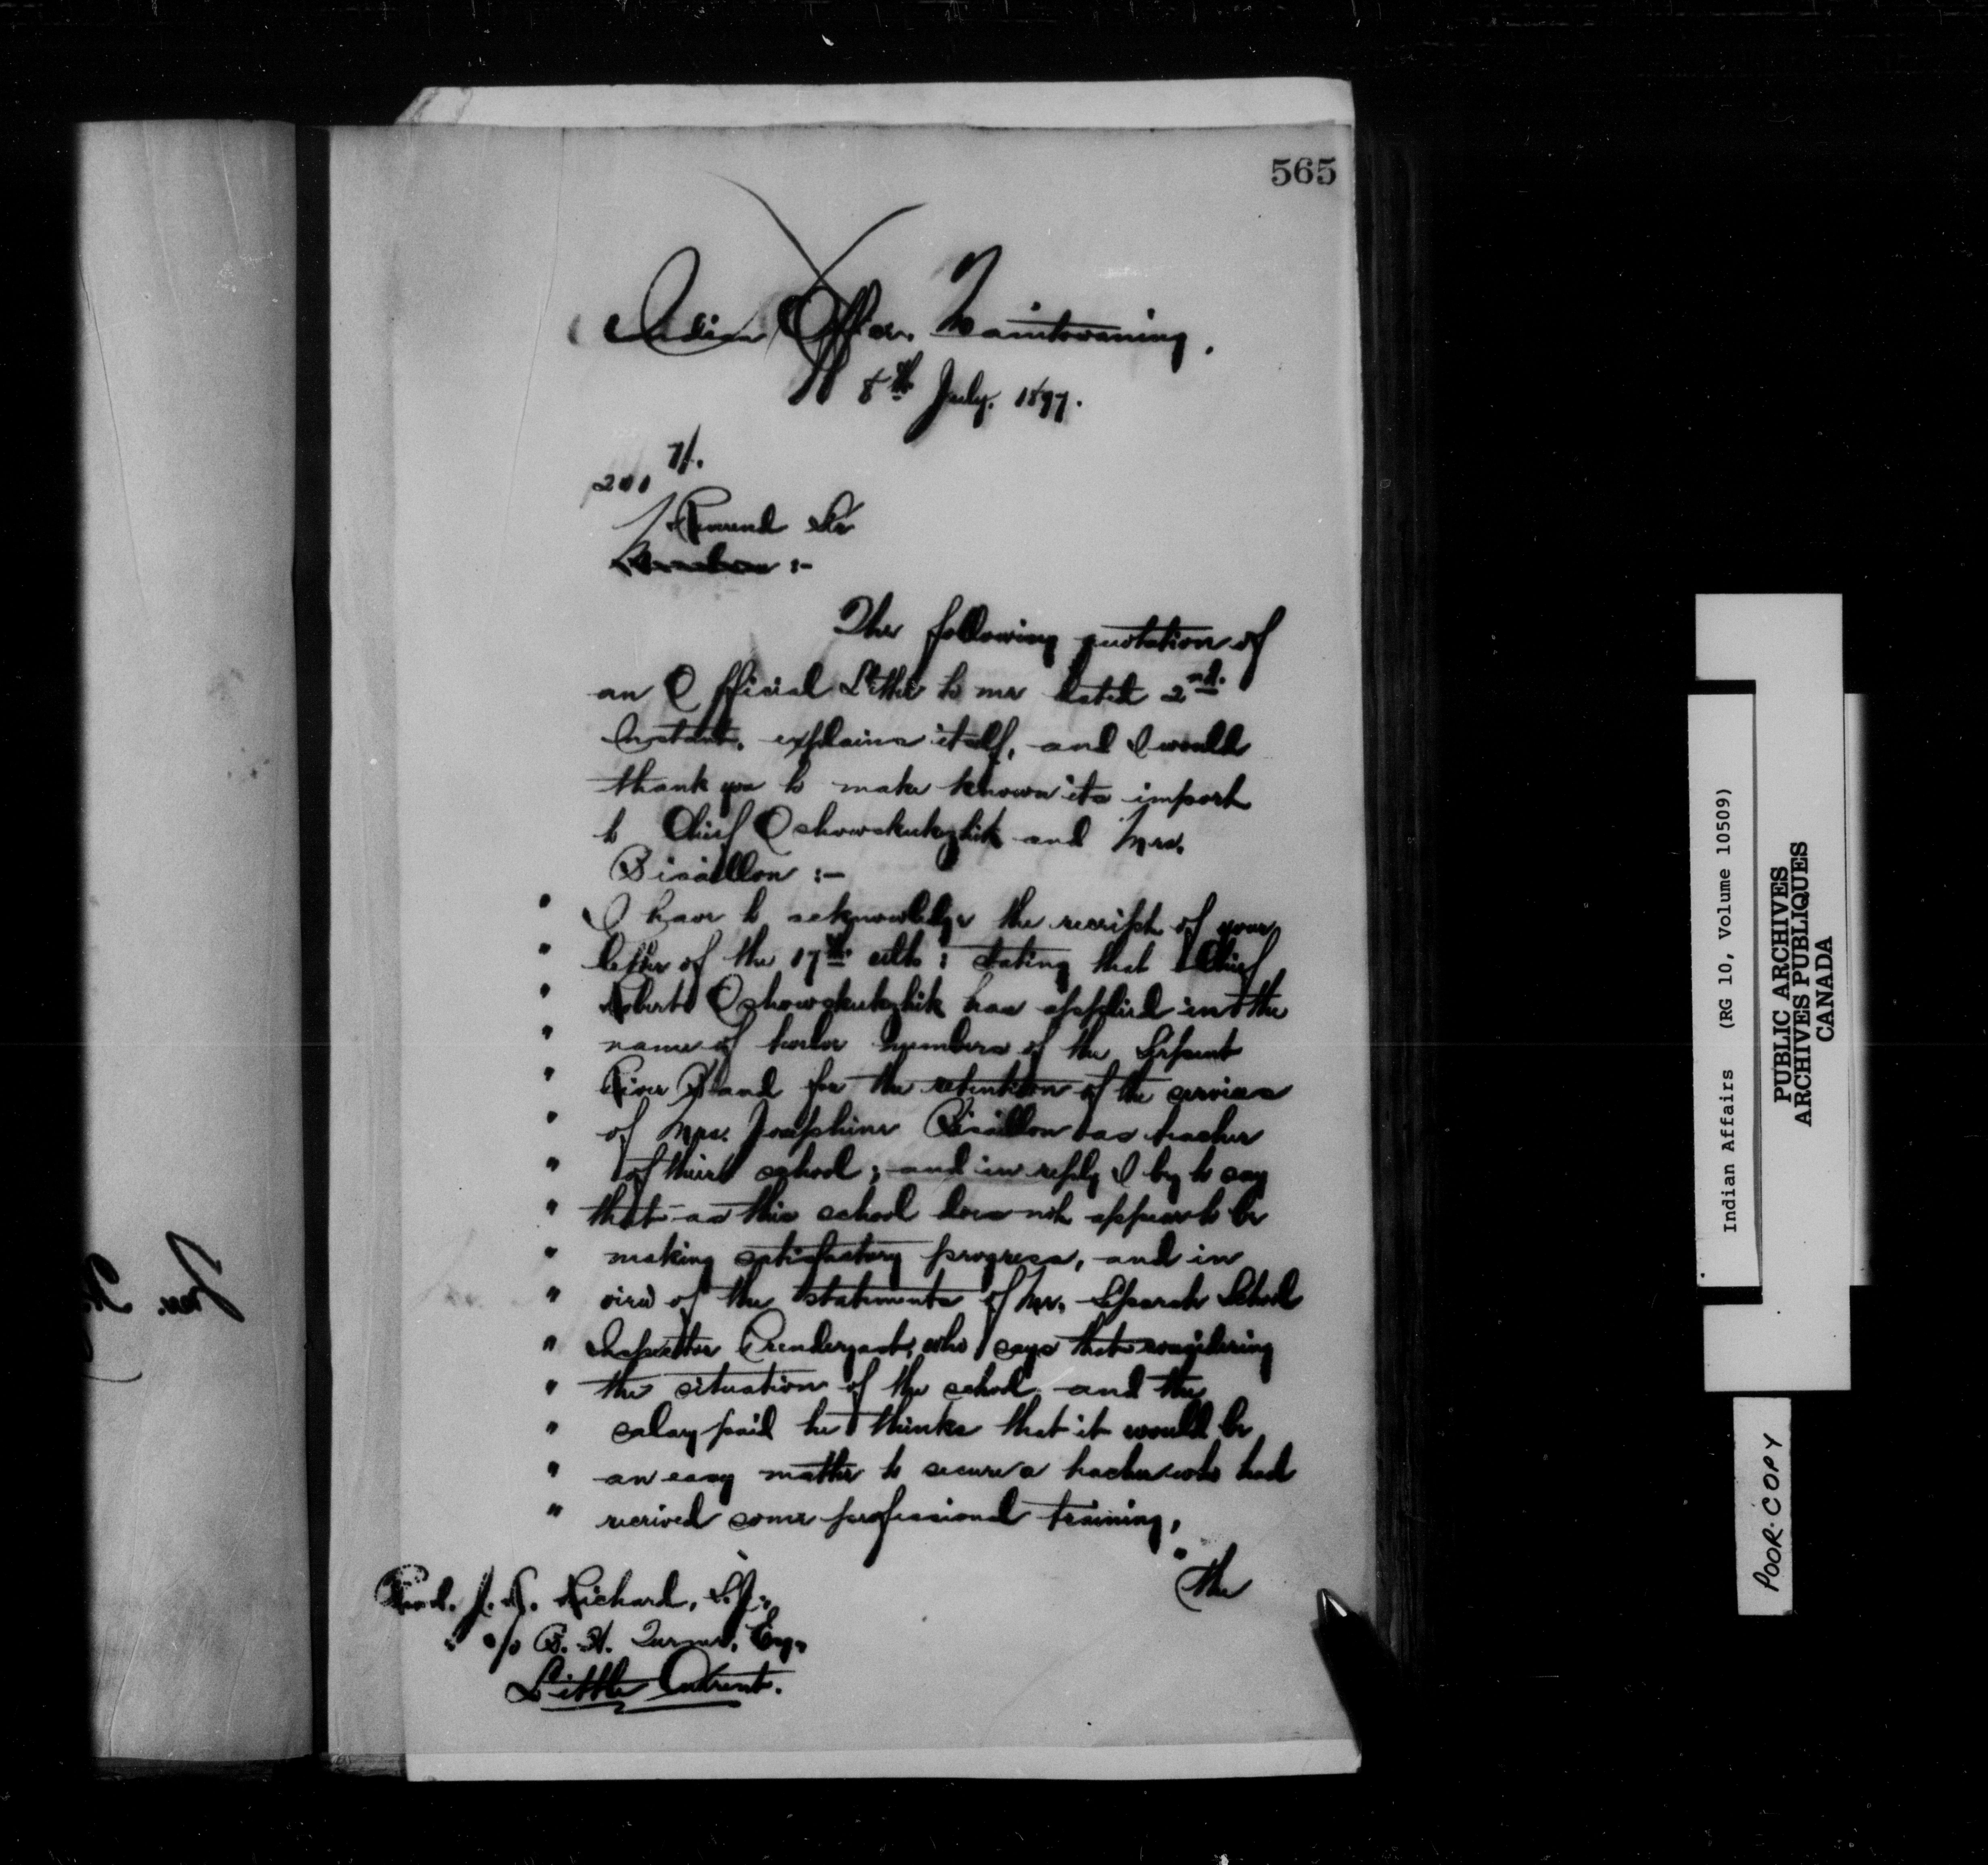 565
Indian Office, Manitowaning,
8th July, 1897.
71.
200
Reverend Sir
:-
The following quotation of
an Official Letter to me dated 2nd.
Instant, explains itself, and I would
thank you to make known its import
to Chief Oshowskukezhik and Mrs.
Bisaillon :-
" I have to acknowledge the receipt of your
" letter of the 17th ulto: stating that Chief
" Robert Oshowskukezhik has applied in the
" name of twelve members of the Serpent
" River Band for the retention of the services
" of Mrs. Josephine Bisaillon as teacher
" of their school; and in reply I beg to say
" that as this school does not appear to be
" making satisfactory progress, and in
" view of the statements of Mr. Separate School
" Inspector Prendergast, who says that considering
" the situation of the school and the
" salary paid he thinks that it would be
" an easy matter to secure a teacher who had
" received some professional training,
" the
Revd. J. Richard, S.J.,
c/o B. H. Turner, Esq,
Little Current.
Indian Affairs (RG 10, Volume 10509)
PUBLIC ARCHIVES
ARCHIVES PUBLIQUES
CANADA
POOR COPY